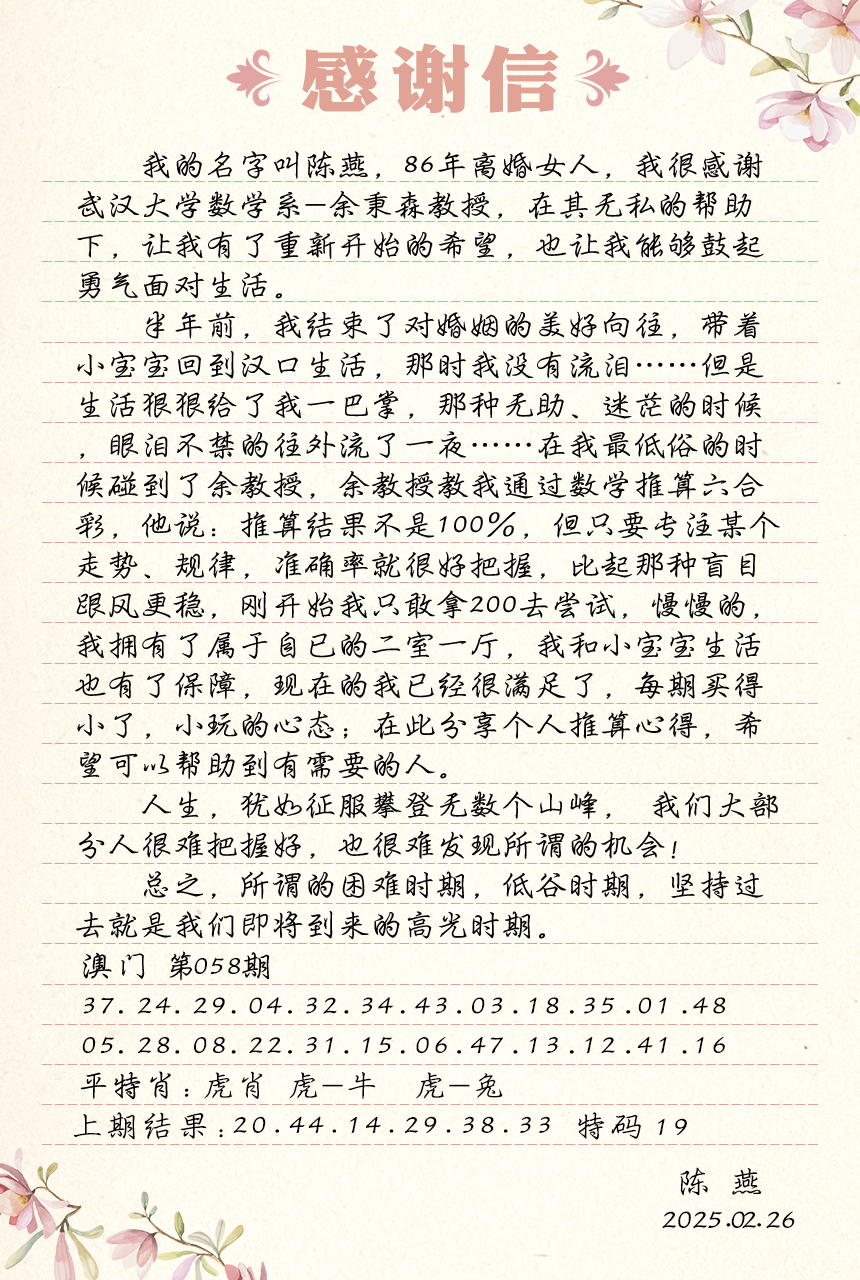 感谢信
我的名字叫陈燕，86年离婚女人，我很感谢
武汉大学数学系—余秉森教授，在其无私的帮助
下，让我有了重新开始的希望，也让我能够鼓起
勇气面对生活。
半年前，我结束了对婚姻的美好向往，带着
小宝宝回到汉口生活，那时我没有流泪……但是
生活狠狠给了我一巴掌，那种无助、迷茫的时候
，眼泪不禁的往外流了一夜……在我最低俗的时
候碰到了余教授，余教授教我通过数学推算六合
彩，他说：推算结果不是100%，但只要专注某个
走势、规律，准确率就很好把握，比起那种盲目
跟风更稳，刚开始我只敢拿200去尝试，慢慢的，
我拥有了属于自已的二室一厅，我和小宝宝生活
也有了保障，现在的我已经很满足了，每期买得
小了，小玩的心态；在此分享个人推算心得，希
望可以帮助到有需要的人。
人生，犹如征服攀登无数个山峰， 我们大部
分人很难把握好，也很难发现所谓的机会！
总之，所谓的困难时期，低谷时期，坚持过
去就是我们即将到来的高光时期。
澳门 第058期
37.24.29.04.32.34.43.03.18.35.01.48
05.28.08.22.31.15.06.47.13.12.41.16
平特肖：虎肖 虎—牛 虎—兔
上期结果：20.44.14.29.38.33 特码 19
陈 燕
2025.02.26